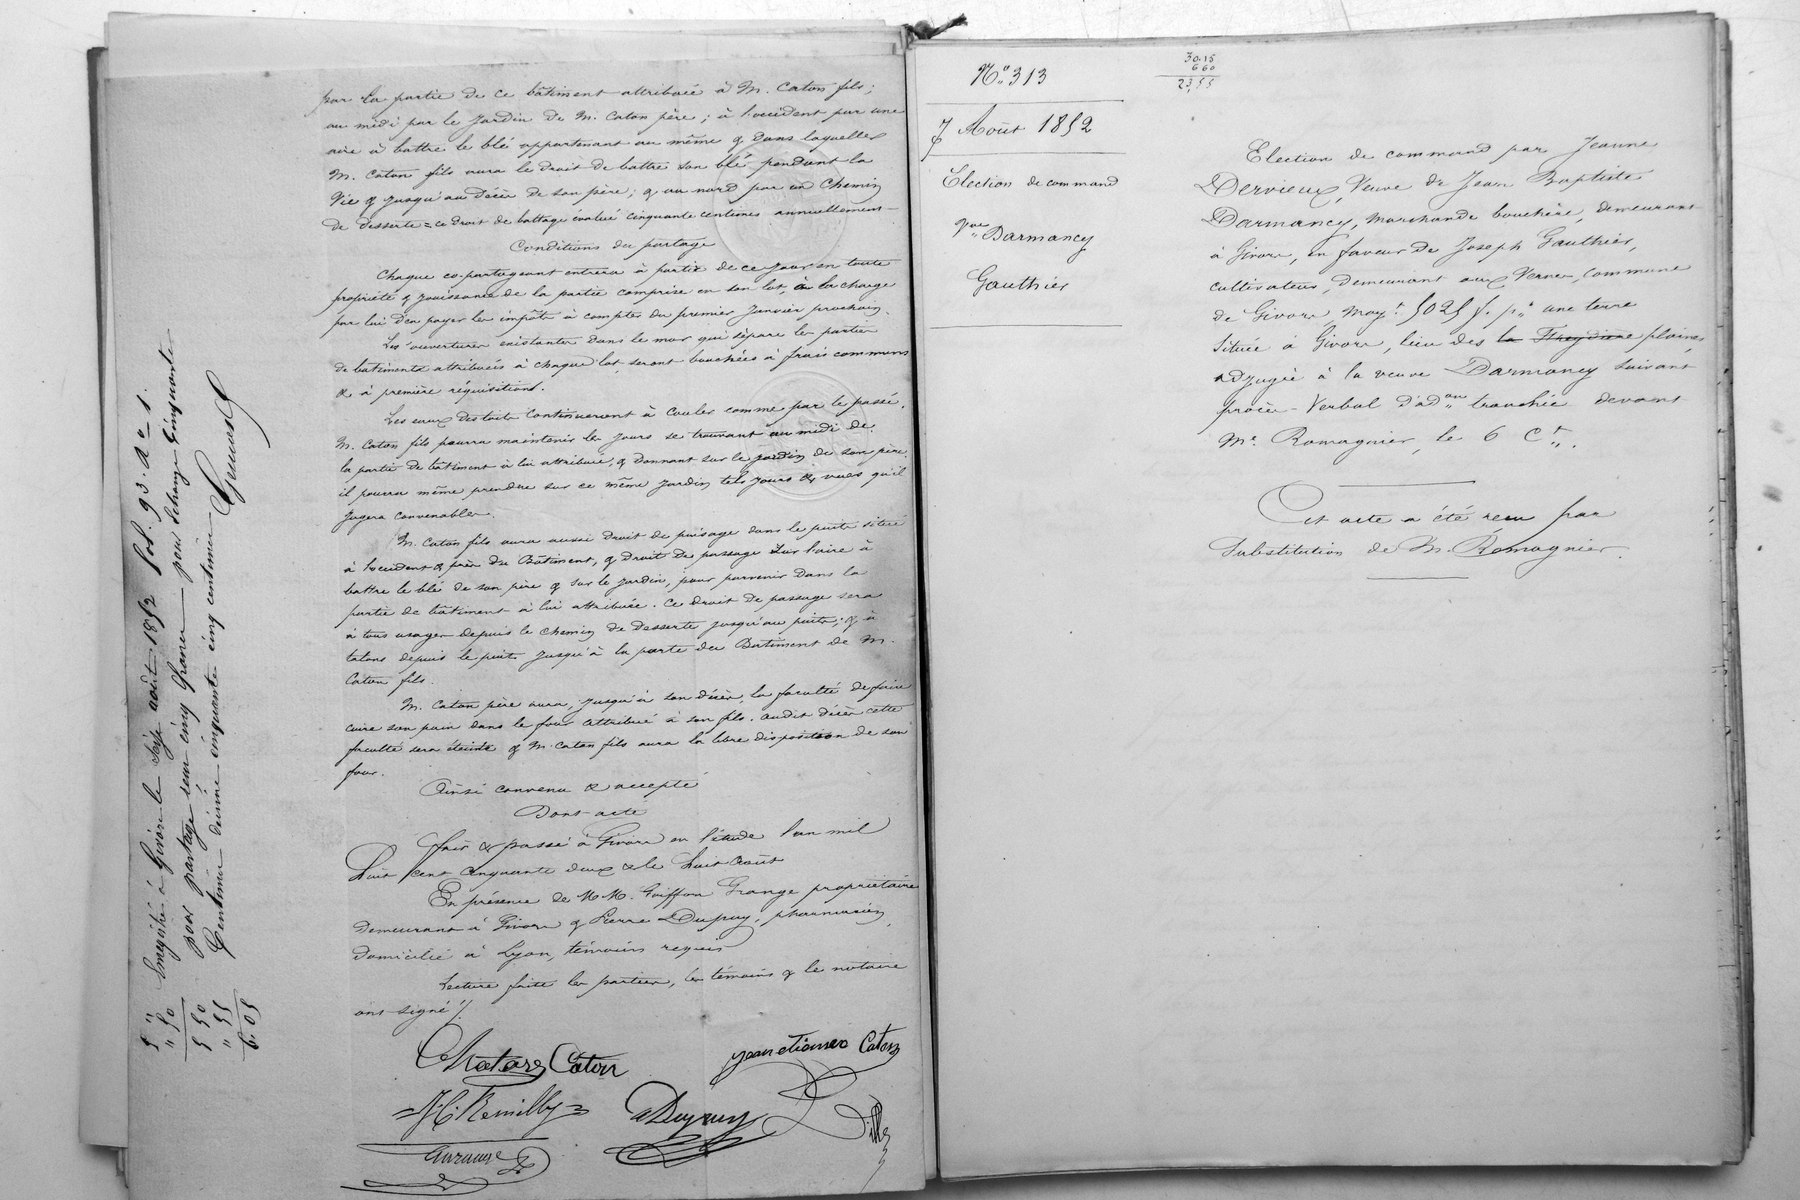 par la partie de ce bâtiment attribuée à M. Caton fils;
au midi par le jardin de M. Caton père; à l'occident par une
aire à battre le blé appartenant au même & dans laquelle
M. Caton fils aura le droit de battre son blé pendant la
vie & jusqu'au décès de son père; & au nord par un chemin
de desserte = ce droit de battage évalué cinquante centimes annuellement
Conditions du partage
Chaque co-partageant entrera à partir de ce jour en toute
propriété & jouissance de la partie comprise en son lot, à la charge
par lui d'en payer les impôts à compter du premier Janvier prochain.
Les ouvertures existantes dans le mur qui sépare les parties
de bâtiments attribuées à chaque lot, seront bouchées à frais communs
& à première réquisition.
Les eaux des toits continueront à couler comme par le passé.
M. Caton fils pourra maintenir les jours se trouvant au midi de
la partie de bâtiment à lui attribuée, & donnant sur le jardin de son père,
il pourra même prendre sur ce même jardin tels jours & vues qu'il
jugera convenables.
M. Caton fils aura aussi droit de puisage dans le puits situé
à l'occident & près du Bâtiment, & droit de passage sur l'aire à
battre le blé de son père & sur le jardin, pour parvenir dans la
partie de bâtiment à lui attribuée. Ce droit de passage sera
à tous usages depuis le chemin de desserte jusqu'au puits; & à
talons depuis le puits jusqu'à la porte du Batiment de M.
Caton fils.
M. Caton père aura, jusqu'à son décès, la faculté de faire
cuire son pain dans le four attribué à son fils. audit décès cette
faculté sera éteinte & M. Caton fils aura la libre disposition de son
four.
Ainsi convenu & accepté
Dont acte
fait & passé à Givors en l'étude l'an mil
huit cent cinquante deux & le huit Août
En présence de M.M. Goiffon Grange propriétaire
demeurant à Givors & Pierre Dupuy, pharmacien,
domicilié à Lyon, témoins requis
Lecture faite les parties, les témoins & le notaire
ont signé /.
Caton
jean etienne Caton
Remilly
Dupuy
Enregistré à Givors le dix août 1852 fol. 93. Ro 1.
pour partage seul cinq francs pour échange cinquante
centimes décime cinquante cinq centimes
5 "
" 50
5 50
" 55
6.05
No 313
30.15
6 60
23,55
7 Août 1852
Election de command
Vve Darmancy
Gauthier
Election de command par Jeanne
Dervieux, Veuve de Jean Baptiste
Darmancy, marchande bouchère, demeurant
à Givors, en faveur de Joseph Gauthier,
cultivateur, demeurant aux Vernes, commune
de Givors, moyt 5025 f. pr une terre
située à Givors, lieu des la plaines,
adjugée à la veuve Darmancy suivant
procès-Verbal d'adon tranchée devant
Me Romagnier, le 6 Ct.
Cet acte a été reçu par
substitution de M. Romagnier.